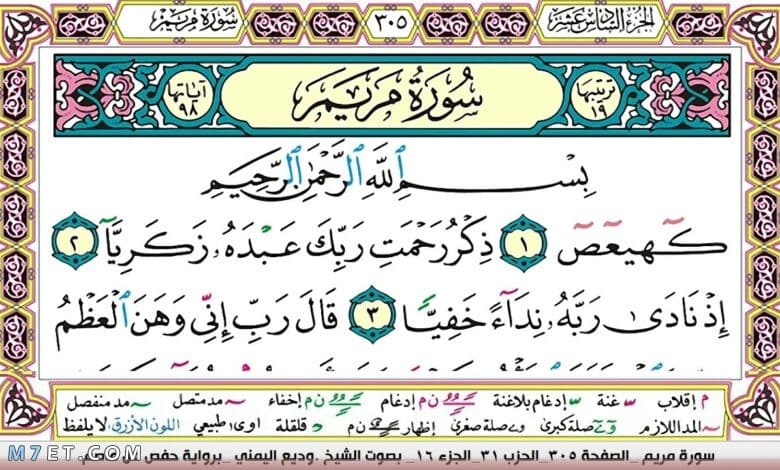 الجزء السادس عشر ٣٠٥ سورة مريم
ترتيبها ١٩ سورة مريم آياتها ٩٨
بِسْمِ اللَّهِ الرَّحْمَٰنِ الرَّحِيمِ
كهيعص ١ ذِكْرُ رَحْمَتِ رَبِّكَ عَبْدَهُ زَكَرِيَّا ٢
إِذْ نَادَىٰ رَبَّهُ نِدَاءً خَفِيًّا ٣ قَالَ رَبِّ إِنِّي وَهَنَ الْعَظْمُ
م إقلاب غنة إدغام بلاغنة ن م إدغام ن م إخفاء مد متصل مد منفصل
المد اللازم صلة كبرى وصلة صغرى إظهار ن م قلقلة اوى طبيعي اللون الأزرق لا يلفظ
M7ET.COM
سورة مريم _ الصفحة ٣٠٥ _ الحزب ٣١ _ الجزء ١٦ _ بصوت الشيخ .وديع اليمني _ برواية حفص عن عاصم.